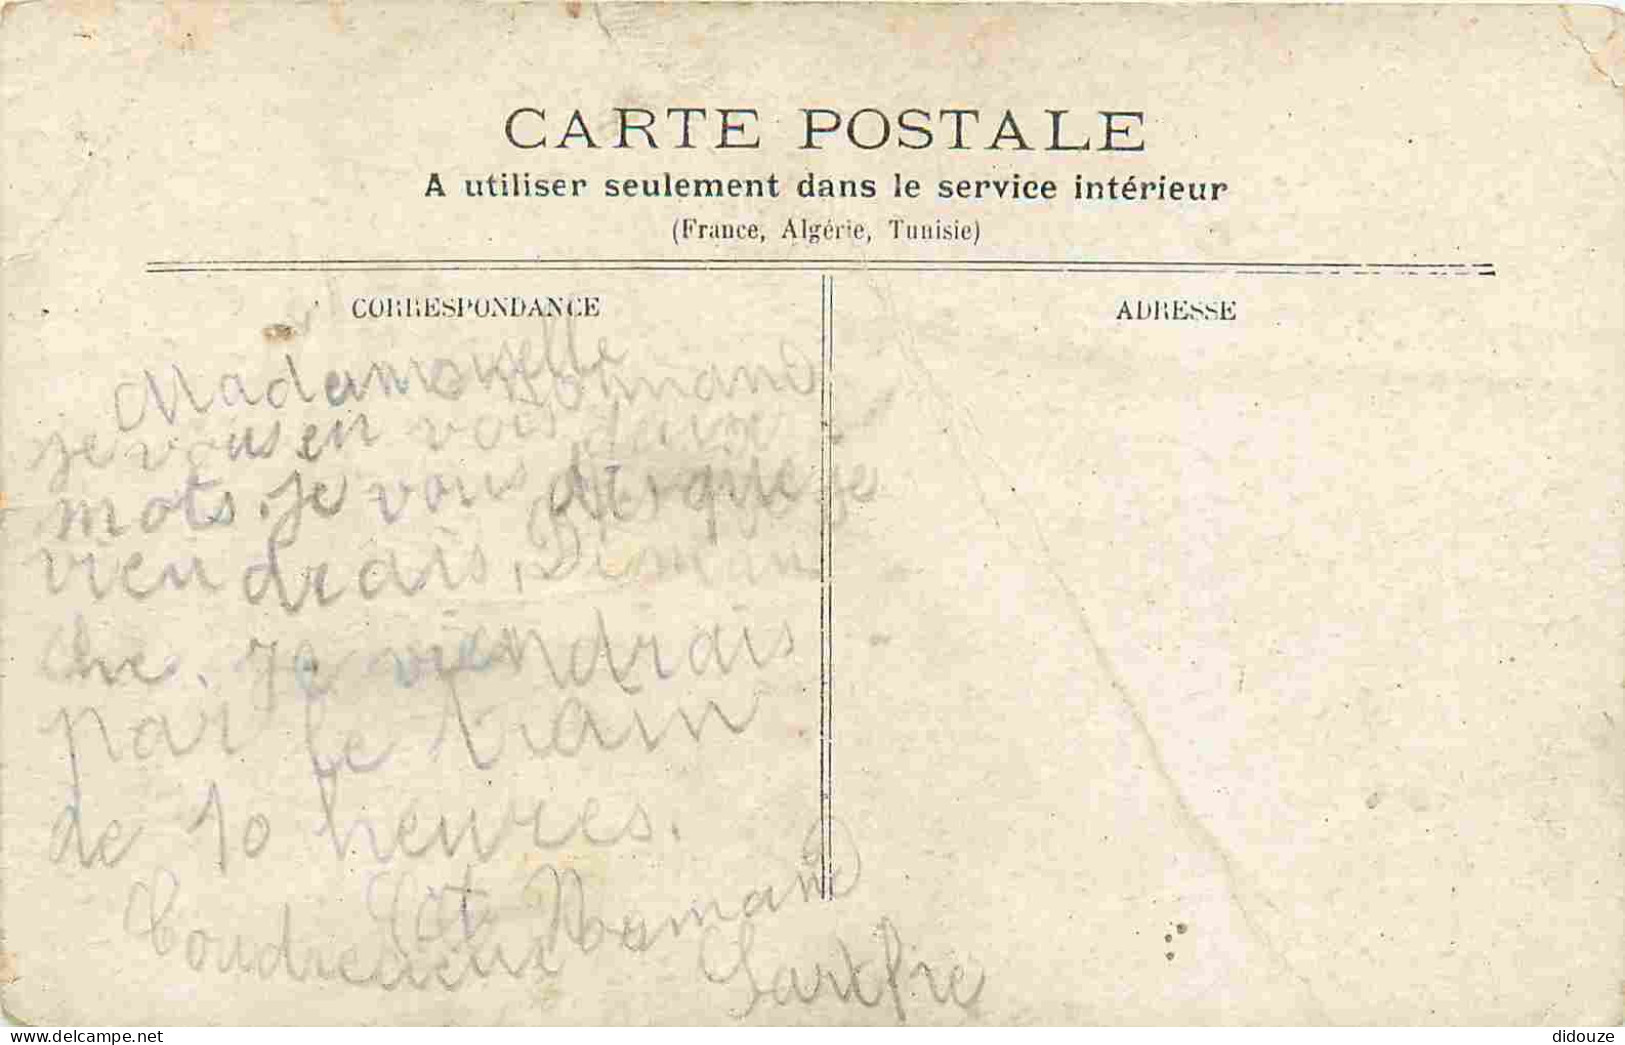 CARTE POSTALE
A utiliser seulement dans le service intérieur
(France, Algérie, Tunisie)
CORRESPONDANCE
ADRESSE
Mademoiselle
je vous en vois deux
mots. je vous dit que je
viendrais, Diman
che. Je viendrais
par le train
de 10 heures.
Sarthe
delcampe.net
didouze